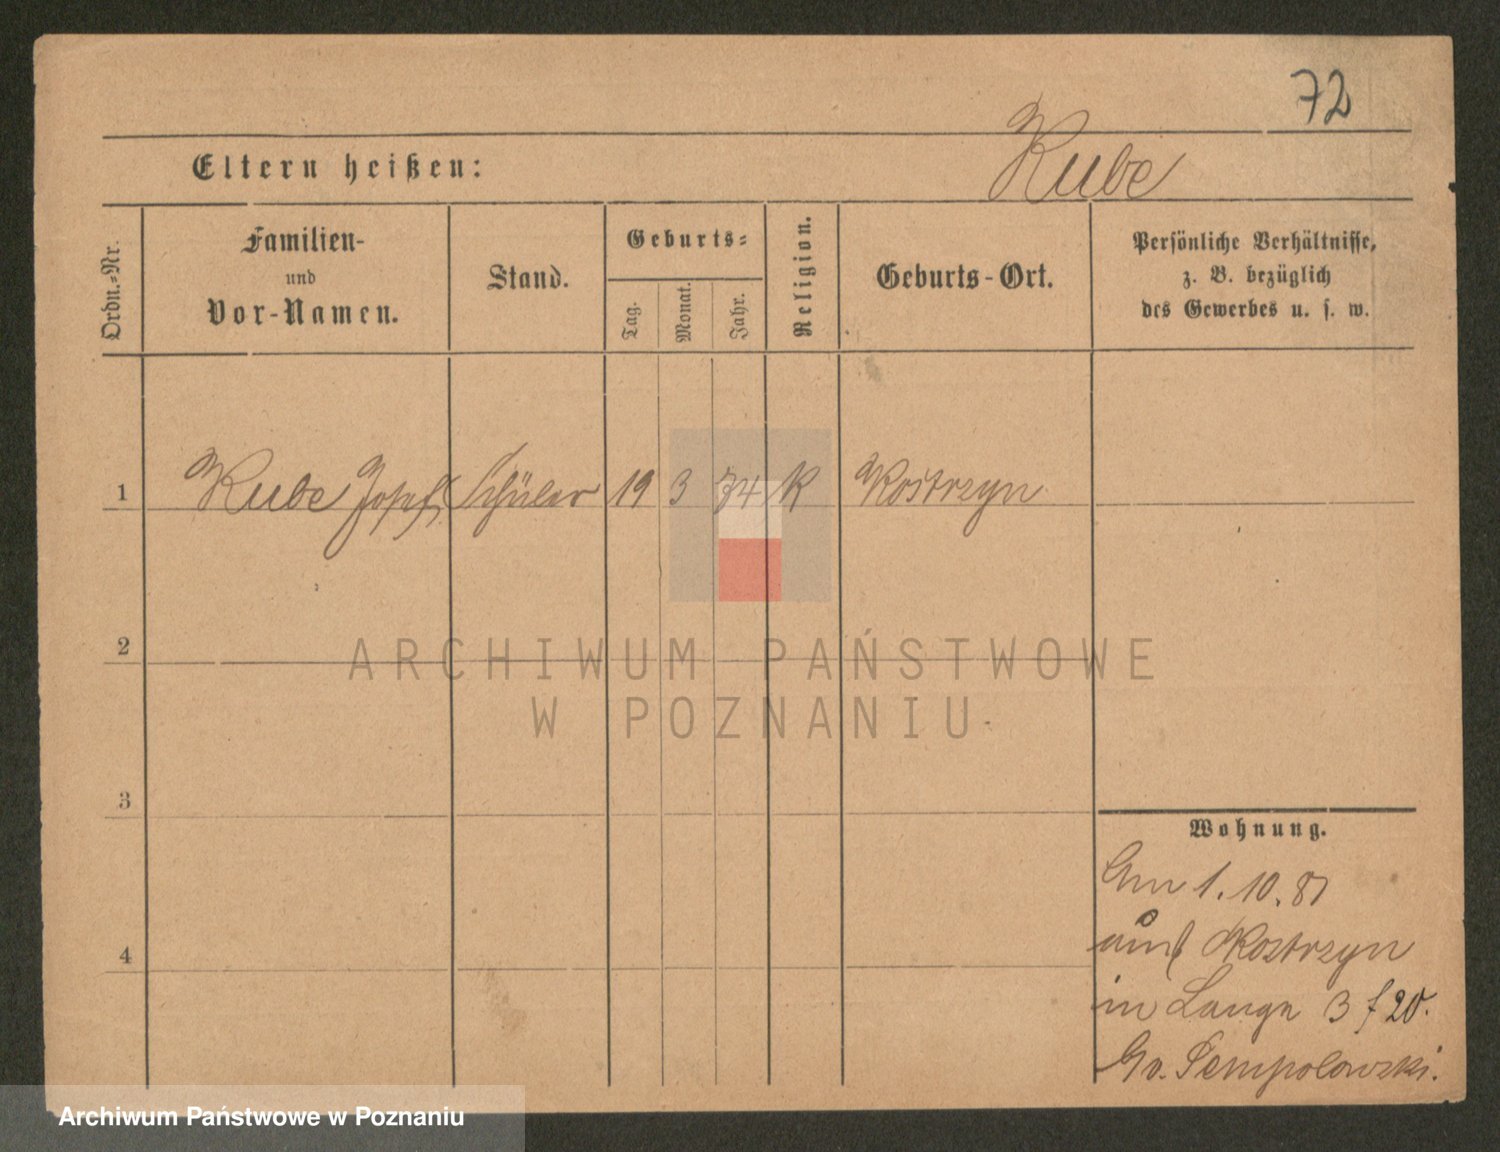 72
Eltern heißen:
Kube
Ordn.-Nr.
Familien-
und
Vor-Namen.
Stand.
Geburts-
Tag.
Monat.
Jahr.
Religion.
Geburts-Ort.
Persönliche Verhältnisse,
z. B. bezüglich
des Gewerbes u. s. w.
1 Kube Josef Schüler 19 3 74 K Kostrzyn
2
ARCHIWUM PAŃSTWOWE
W POZNANIU
3
Wohnung.
Am 1. 10. 87
aus Kostrzyn
4
in Lange 3 f 20.
Sempolowski.
Archiwum Państwowe w Poznaniu